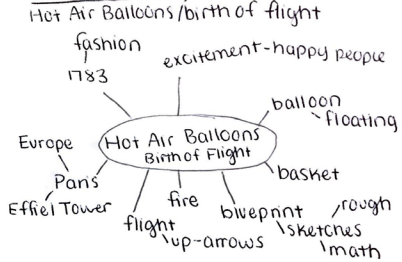 Hot Air Balloons/birth of flight
fashion
1783
excitement-happy people
balloon
floating
Hot Air Balloons
Birth of Flight
Europe
Paris
Effiel Tower
basket
fire
flight
up-arrows
blueprint
rough
sketches
math